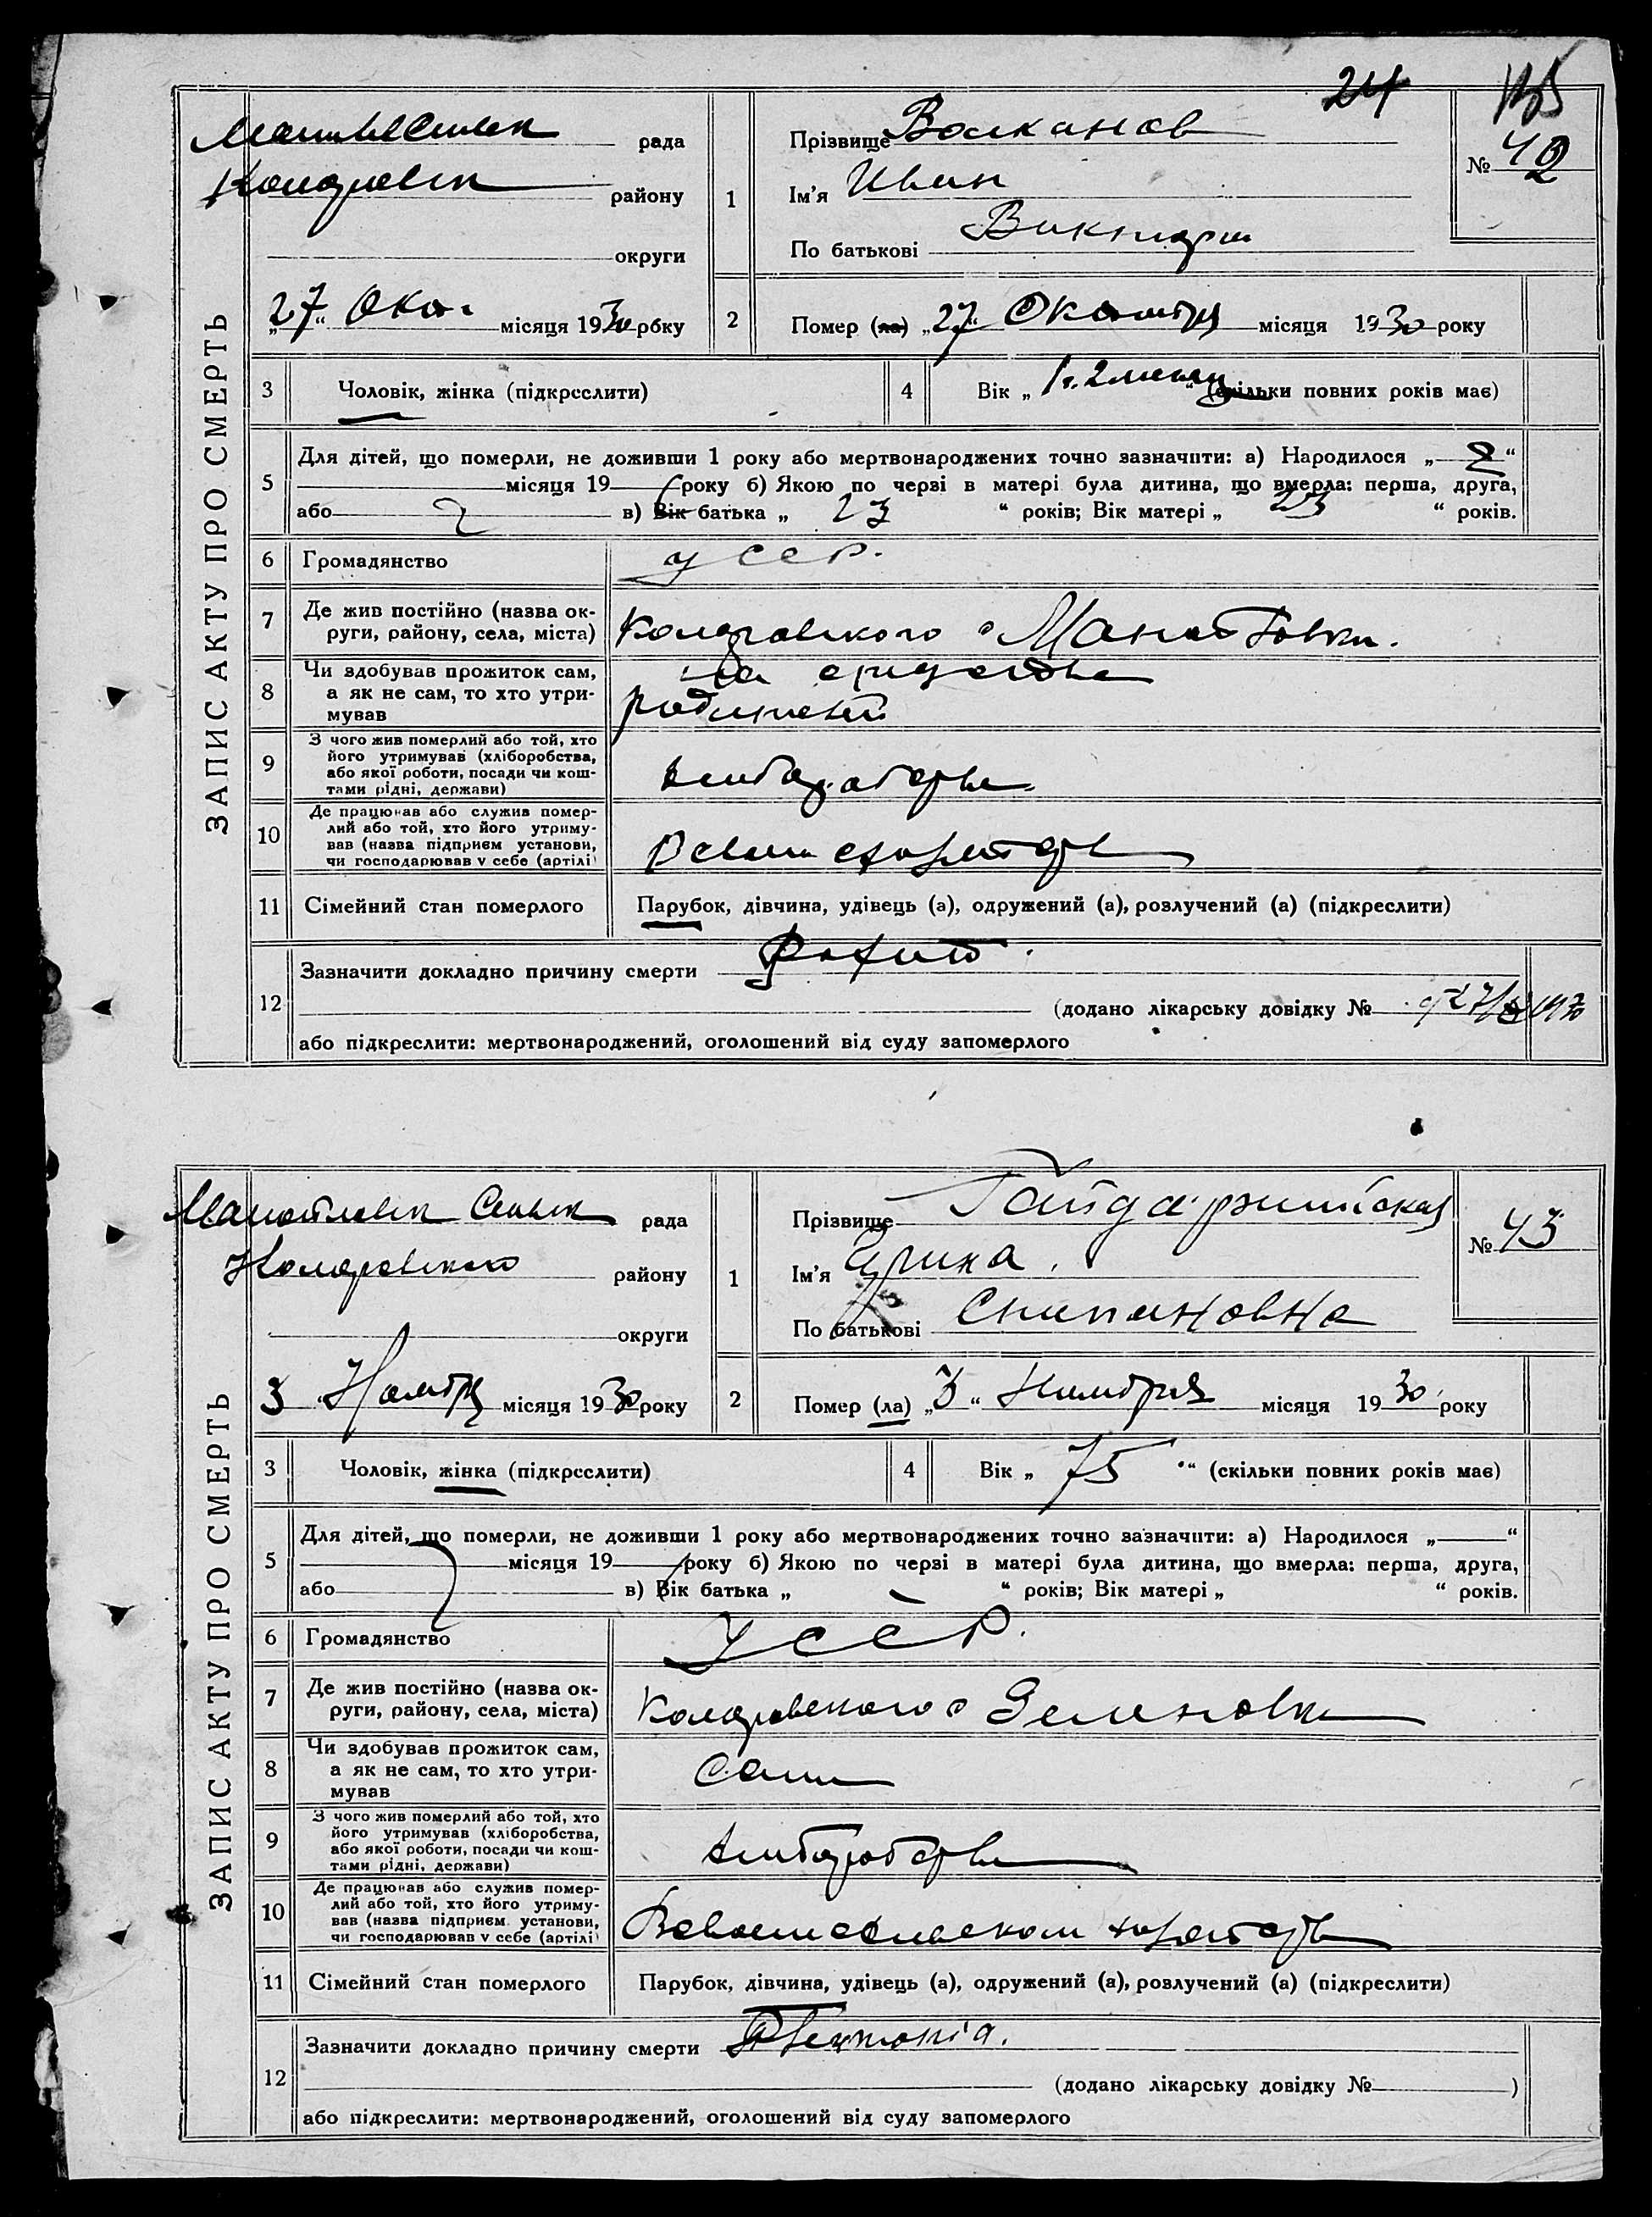 24
ЗАПИС АКТУ ПРО СМЕРТЬ
рада
району
округи
„27“ Окт. місяця 1930 року
1
Прізвище Волканов
Ім'я Иван
По батькові
№ 42
2
Помер (ла) „27“ Октября місяця 1930 року
3
Чоловік, жінка (підкреслити)
4
Вік „1 г. 2 месяц“ (скільки повних років має)
5
Для дітей, що померли, не доживши 1 року або мертвонароджених точно зазначити: а) Народилося „ “
місяця 19 року б) Якою по черзі в матері була дитина, що вмерла: перша, друга,
або в) Вік батька „ 23 “ років; Вік матері „ 23 “ років.
6
Громадянство
УССР.
7
Де жив постійно (назва ок-
руги, району, села, міста)
Коларовского
8
Чи здобував прожиток сам,
а як не сам, то хто утри-
мував
на
родителей
9
З чого жив померлий або той, хто
його утримував (хліборобства,
або якої роботи, посади чи кош-
тами рідні, держави)
10
Де працював або служив помер-
лий або той, хто його утриму-
вав (назва підприєм установи,
чи господарював у себе (артілі)
11
Сімейний стан померлого
Парубок, дівчина, удівець (а), одружений (а), розлучений (а) (підкреслити)
12
Зазначити докладно причину смерти Рахит.
(додано лікарську довідку №
або підкреслити: мертвонароджений, оголошений від суду запомерлого
ЗАПИС АКТУ ПРО СМЕРТЬ
рада
Коларовского району
округи
3 Ноября місяця 1930 року
1
Прізвище
Ім'я Ирина
По батькові Степановна
№ 43
2
Помер (ла) „3“ Ноября місяця 1930 року
3
Чоловік, жінка (підкреслити)
4
Вік „ 75 “ (скільки повних років має)
5
Для дітей, що померли, не доживши 1 року або мертвонароджених точно зазначити: а) Народилося „ “
місяця 19 року б) Якою по черзі в матері була дитина, що вмерла: перша, друга,
або в) Вік батька „ “ років; Вік матері „ “ років.
6
Громадянство
УССР.
7
Де жив постійно (назва ок-
руги, району, села, міста)
Коларовского
8
Чи здобував прожиток сам,
а як не сам, то хто утри-
мував
Сами
9
З чого жив померлий або той, хто
його утримував (хліборобства,
або якої роботи, посади чи кош-
тами рідні, держави)
10
Де працював або служив помер-
лий або той, хто його утриму-
вав (назва підприєм. установи,
чи господарював у себе (артілі)
11
Сімейний стан померлого
Парубок, дівчина, удівець (а), одружений (а), розлучений (а) (підкреслити)
12
Зазначити докладно причину смерти
(додано лікарську довідку № )
або підкреслити: мертвонароджений, оголошений від суду запомерлого